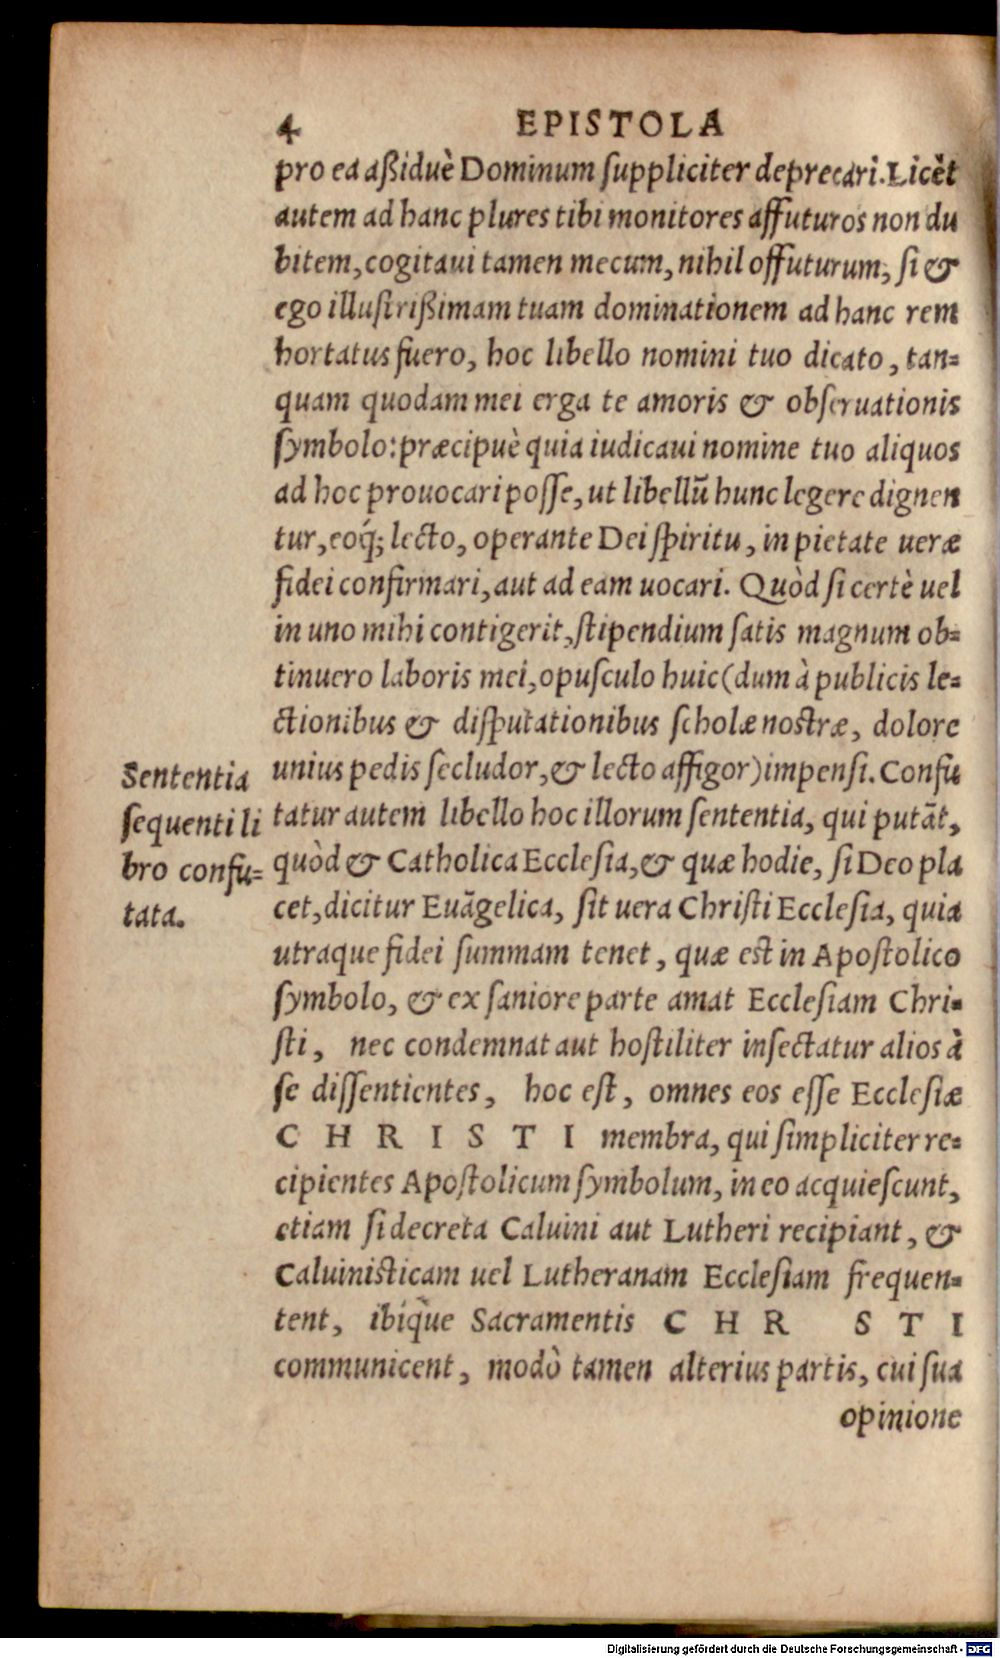 4 EPISTOLA
pro ea aßiduè Dominum ſuppliciter deprecari. Licèt
autem ad hanc plures tibi monitores affuturos non du
bitem, cogitaui tamen mecum, nihil offuturum, ſi &
ego illuſtrißimam tuam dominationem ad hanc rem
hortatus fuero, hoc libello nomini tuo dicato, tan=
quam quodam mei erga te amoris & obſeruationis
ſymbolo: præcipuè quia iudicaui nomine tuo aliquos
ad hoc prouocari poſſe, ut libellū hunc legere dignen
tur, eoq́; lecto, operante Dei ſpiritu, in pietate ueræ
fidei confirmari, aut ad eam uocari. Quòd ſi certè uel
in uno mihi contigerit, ſtipendium ſatis magnum ob=
tinuero laboris mei, opuſculo huic (dum à publicis le=
ctionibus & diſputationibus ſcholæ noſtræ, dolore
unius pedis ſecludor, & lecto affigor) impenſi. Confu
tatur autem libello hoc illorum ſententia, qui putāt,
quòd & Catholica Eccleſia, & quæ hodie, ſi Deo pla
cet, dicitur Euāgelica, ſit uera Chriſti Eccleſia, quia
utraque fidei ſummam tenet, quæ eſt in Apoſtolico
ſymbolo, & ex ſaniore parte amat Eccleſiam Chri=
ſti, nec condemnat aut hoſtiliter inſectatur alios à
ſe diſſentientes, hoc eſt, omnes eos eſſe Eccleſiæ
C H R I S T I membra, qui ſimpliciter re=
cipientes Apoſtolicum ſymbolum, in eo acquieſcunt,
etiam ſi decreta Caluini aut Lutheri recipiant, &
Caluiniſticam uel Lutheranam Eccleſiam frequen=
tent, ibiq̀ue Sacramentis C H R S T I
communicent, modò tamen alterius partis, cui ſua
opinione
Sententia
ſequenti li
bro confu=
tata.
Digitalisierung gefördert durch die Deutsche Forschungsgemeinschaft - DFG